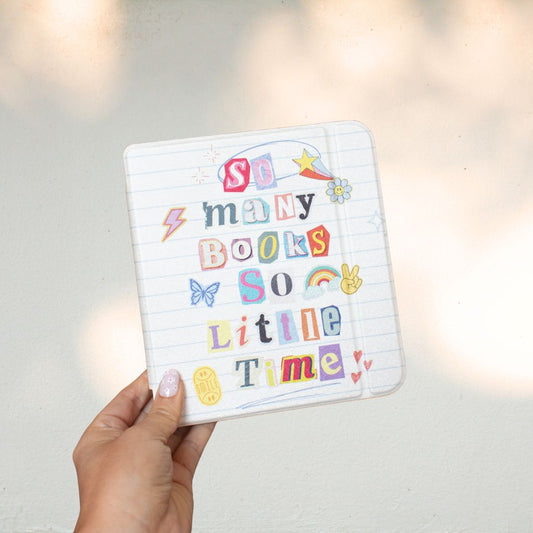 So
many
Books
So
Little
Time